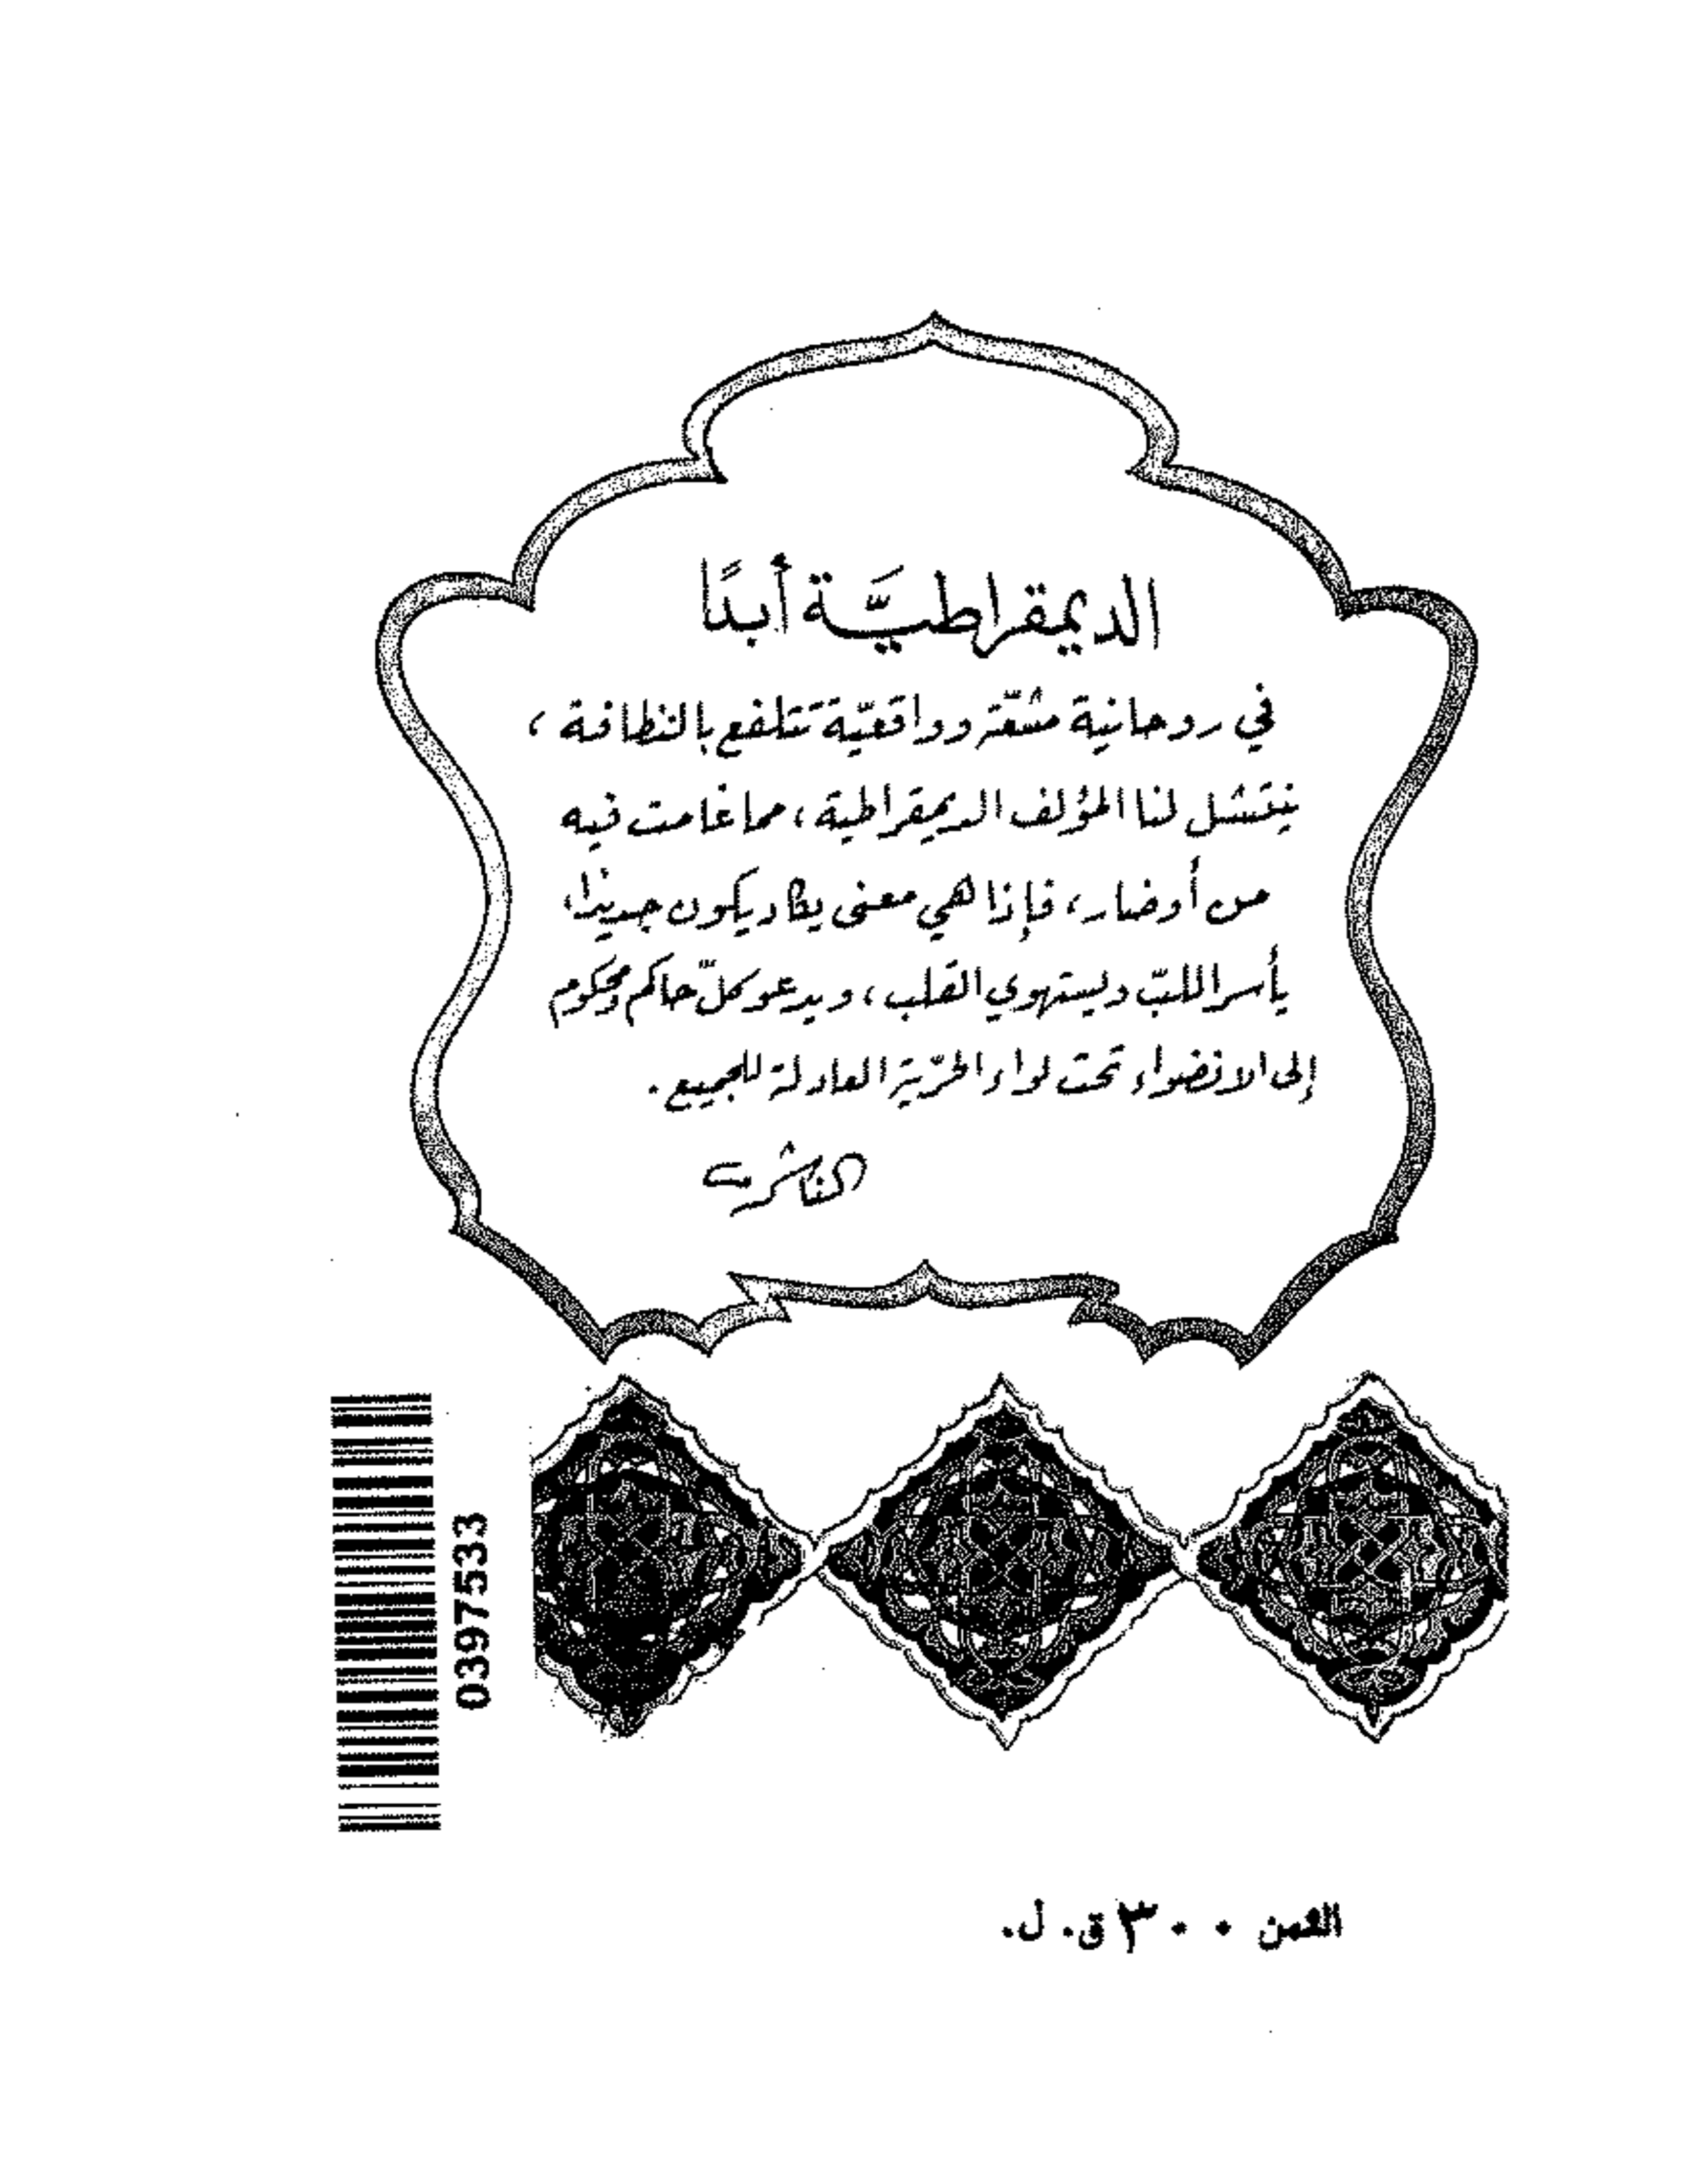 الديمقراطيَّة أبدًا
في روحانية مشعّة وواقعيّة تتلفع بالنظافة ،
ينتشل لنا المؤلف الديمقراطية ، مما غامت فيه
من أوضار ، فإذا هي معنى يكاد يكون جديدا ،
يأسر اللبّ ويستهوي القلب ، ويدعو كلّ حاكم ومحكوم
إلى الانضواء تحت لواء الحرّية العادلة للجميع .
الناشر
0397533
الثمن ٣٠٠ ق. ل.